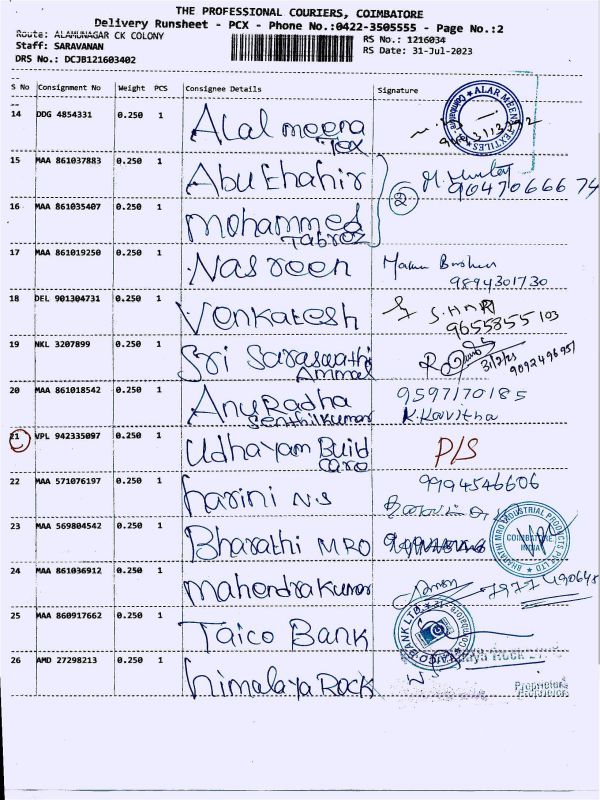 THE PROFESSIONAL COURIERS, COIMBATORE
Delivery Runsheet - PCX - Phone No.:0422-3505555 - Page No.:2
Route: ALAMUNAGAR CK COLONY
RS No.: 1216034
Staff: SARAVANAN
RS Date: 31-Jul-2023
DRS No.: DCJB121603402
S No Consignment No Weight PCS Consignee Details Signature
14 DDG 4854331 0.250 1 Alal meera Tex
ALAR MEENA TEXTILES
15 MAA 861037883 0.250 1 Abuthahir
2
9047066674
16 MAA 861035407 0.250 1 mohammed Tabroz
17 MAA 861019250 0.250 1 Nasreen
9894301730
18 DEL 901304731 0.250 1 Venkatesh
9655855103
19 NKL 3207899 0.250 1 Sri Saraswathi Ammal
9092496951
20 MAA 861018542 0.250 1 Anu Radha Senthilkumar
9597170185
K. Kavitha
21 VPL 942335097 0.250 1 Udhayam Build care P/S
22 MAA 571076197 0.250 1 harini N.S 9994546606
23 MAA 569804542 0.250 1 Bharathi MRO
BHARATHI MRO INDUSTRIAL PRODUCTS PVT LTD
COIMBATORE
INDIA
24 MAA 861036912 0.250 1 mahendra kumar
25 MAA 860917662 0.250 1 Taico Bank
26 AMD 27298213 0.250 1 himalaya Rock
Proprietor